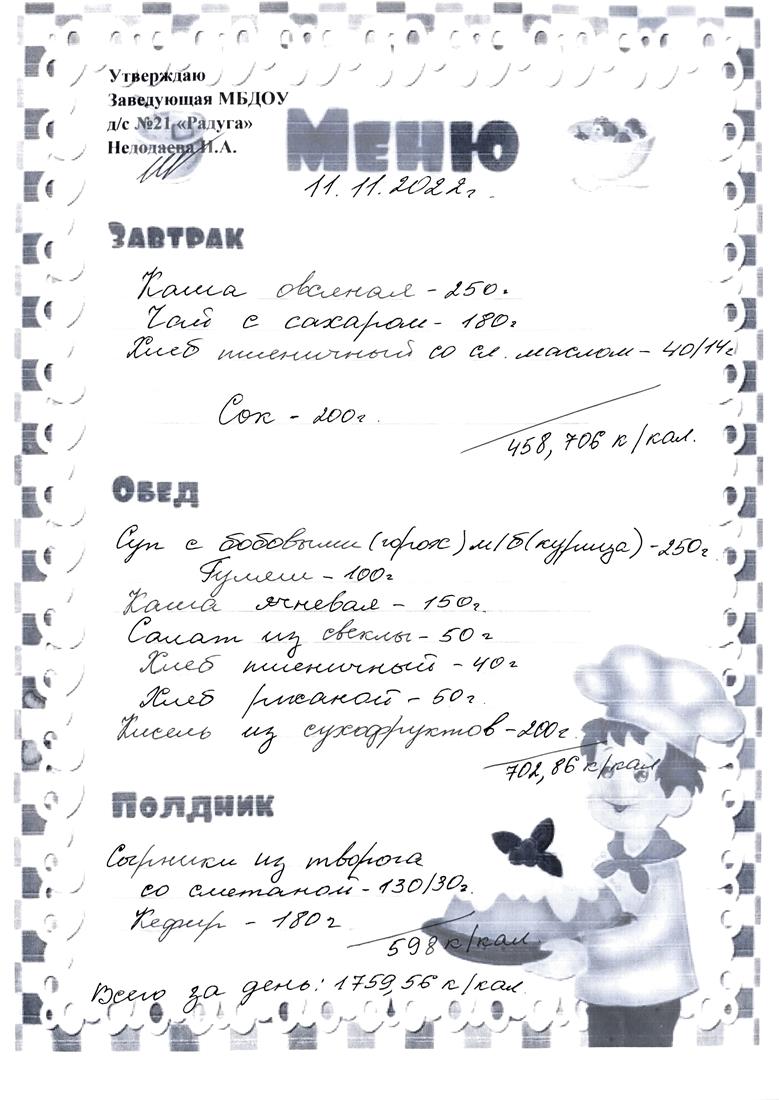 Утверждаю
Заведующая МБДОУ
д/с №21 «Радуга»
Недодаева И.А.
Меню
11.11.2022г.
Завтрак
Каша овсяная - 250г
Чай с сахаром - 180г
Хлеб пшеничный со сл. маслом - 40/14г
Сок - 200г.
458,706 к/кал.
Обед
Суп с бобовыми (горох) м/б (курица) - 250г.
Гуляш - 100г
Каша ячневая - 150г.
Салат из свеклы - 50г
Хлеб пшеничный - 40г
Хлеб ржаной - 60г.
Кисель из сухофруктов - 200г.
702,86 к/кал
Полдник
Сырники из творога
со сметаной - 130/30г.
Кефир - 180г
598 к/кал
Всего за день: 1759,56 к/кал.